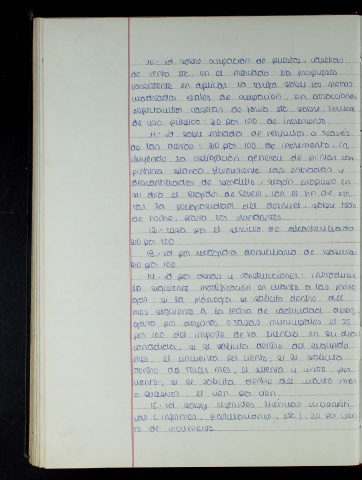 10.- id sobre ocupación de puestos, casetas
de venta etc. en el mercado: La propuesta
consistente en aplicar la tarifa sobre los metros
cuadrados reales de ocupación, en atracciones
espectáculos casetas de feria etc. sobre terreno
de uso público: 20 por 100 de incremento.
11.- id. sobre entrada de vehículos a través
de las aceras: 20 por 100 de incremento, in
cluyendo la obligación general de pintar con
pintura blanca las entradas y
de bordillo, según propuso en
su día el con el fin de evi
tar la peligrosidad del desnivel, sobre todo
de noche, para los viandantes.
12.- tasa por el servicio de alcantarillado
20 por 100
13.- id por recogida domiciliaria de basuras
20 por 100
14.- id por obras y construcciones: introducir
la siguiente modificación en cuanto a las prórro
gas: si la prórroga se solicita dentro del
mes siguiente a la fecha de caducidad, deven
gará por derechos o tasas municipales el 25
por 100 del importe de la licencia en su día
concedida; si se solicita dentro del segundo
mes, el cincuenta por ciento; si se solicita
dentro del tercer mes, el setenta y cinco por
ciento; si se solicita dentro del cuarto mes
o sucesivos, el cien por cien.
15.- id sobre restantes licencias
(informes, etc.): 20 por cien
to de incremento